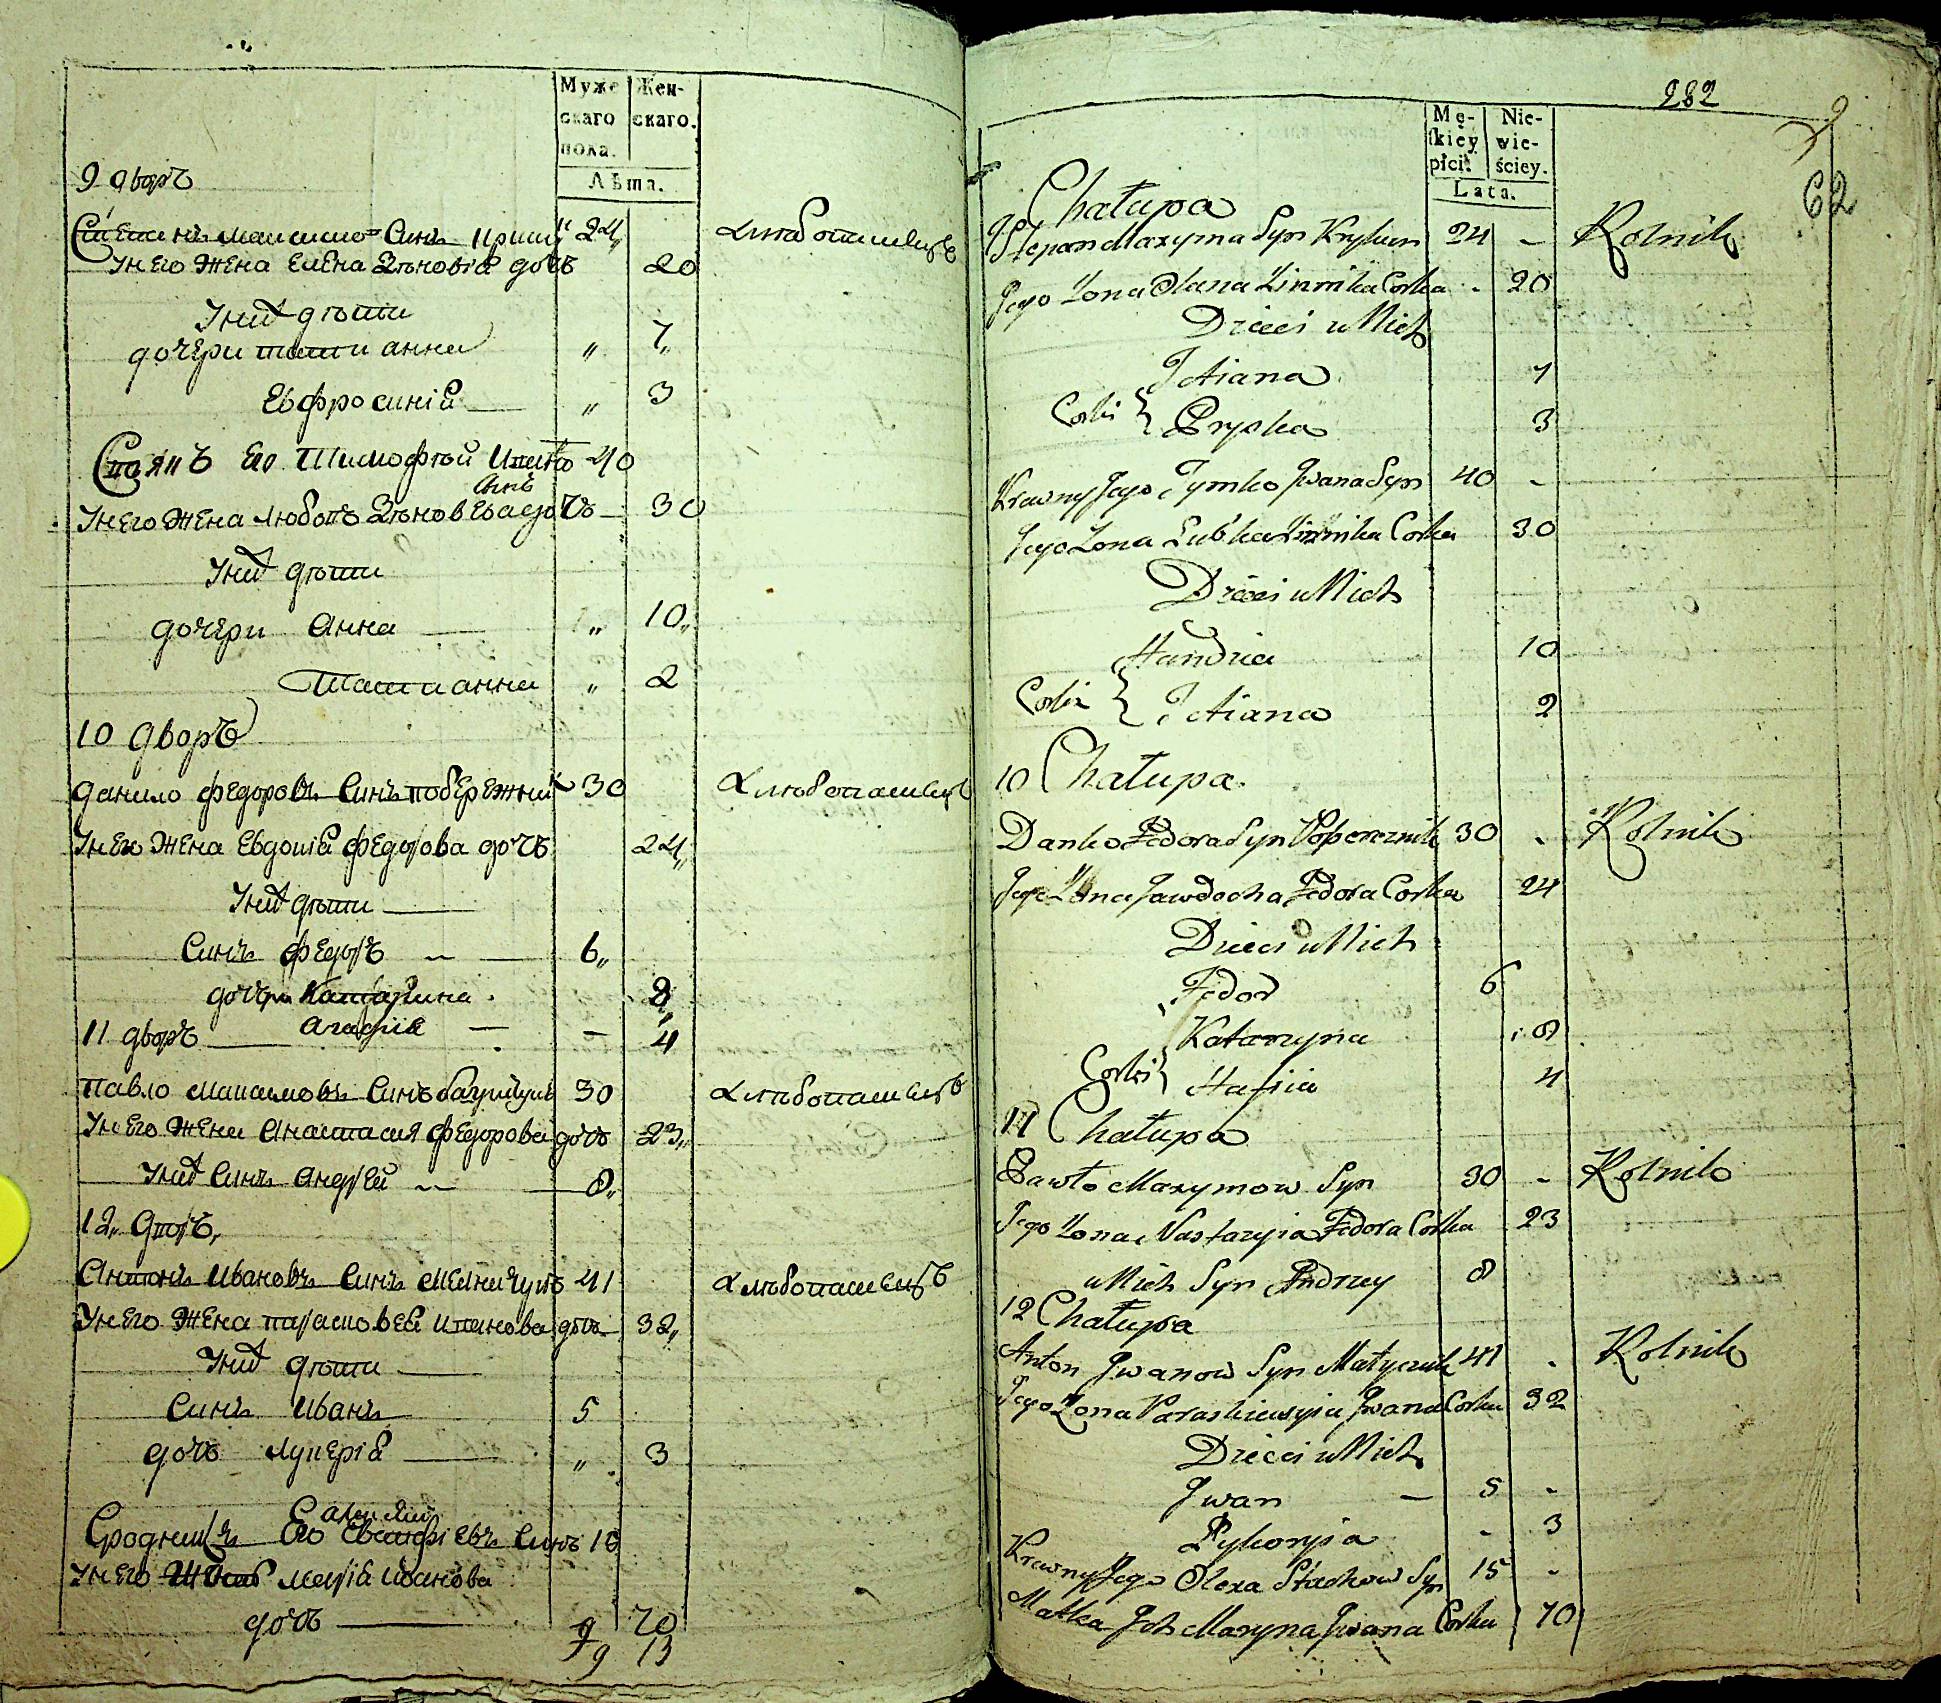 Муже
скаго
пола.
Жен-
скаго.
Лѣта.
9 дворъ
Степанъ Максимовъ Синъ 24 хлѣбопашецъ
Унего жена Елена Зѣновіа дочь 20
Унихъ дѣти
дочери татианна " 7
Евфросиніа " 3
Его Тимофтѣй 40
Синъ
Унего жена Любовъ Зѣновѣва дочь 30
Унихъ дѣти
дочери Анна " 10
Татианна " 2
10 дворъ
Данило Федоровъ Синъ побережник 30 хлѣбопашецъ
Унего жена Евдокіа Федорова дочъ 24
Унихъ дѣти
Синъ Федоръ 6
дочери Катарина 8
11 дворъ Агафіа - 4
Павло Максимовъ Синъ 30 хлѣбопашецъ
Унего жена Анастасия Федорова дочъ 23
Унихъ Синъ Андрей 8
12 дворъ
Антонъ Ивановъ Синъ Мелничукъ 41 хлѣбопашецъ
Унего жена параскевеа Иванова дочъ 32
Унихъ дѣти
Синъ Иванъ 5
дочъ Лукеріа " 3
Алексѣй
Сродникъ Его Евстафіевъ Синъ 15
Унего Маріа Иванова
дочъ 70
9 13
282
62
Mę-
skiey
płci.
Nie-
wie-
ściey.
Lata.
Chałupa
Stepan Maxyma Syn 24 - Rolnik
Jego Żona Olana Zinnika Corka - 20
Dzieci u Nich
Tatiana 7
Corki { Pryska 3
Krewny Jego Tymko Jwana Syn 40 -
Jego Żona Lubka Zinnika Corka 30
Dzieci u Nich
Handzia 10
Corki { Tatiana 2
10 Chałupa
Danko Fedora Syn Pobereznik 30 - Rolnik
Jego Żona Jawdocha Fedora Corka 24
Dzieci u Nich
Fedor 6
Katarzyna 8
Corki } Hafiia 4
11 Chałupa
Pawło Maxymow Syn 30 - Rolnik
Jego Żona Nastazyia Fedora Corka 23
u Nich Syn Andrzey 8
12 Chałupa
Anton Jwanow Syn 41 - Rolnik
Jego Żona Paraskiewyia Jwana Corka 32
Dzieci u Nich
Jwan - 5 -
Łykoryia - 3
Krewny Jego Olexa Staskow Syn 15 -
Matka Jch Maryna Jwana Corka 70